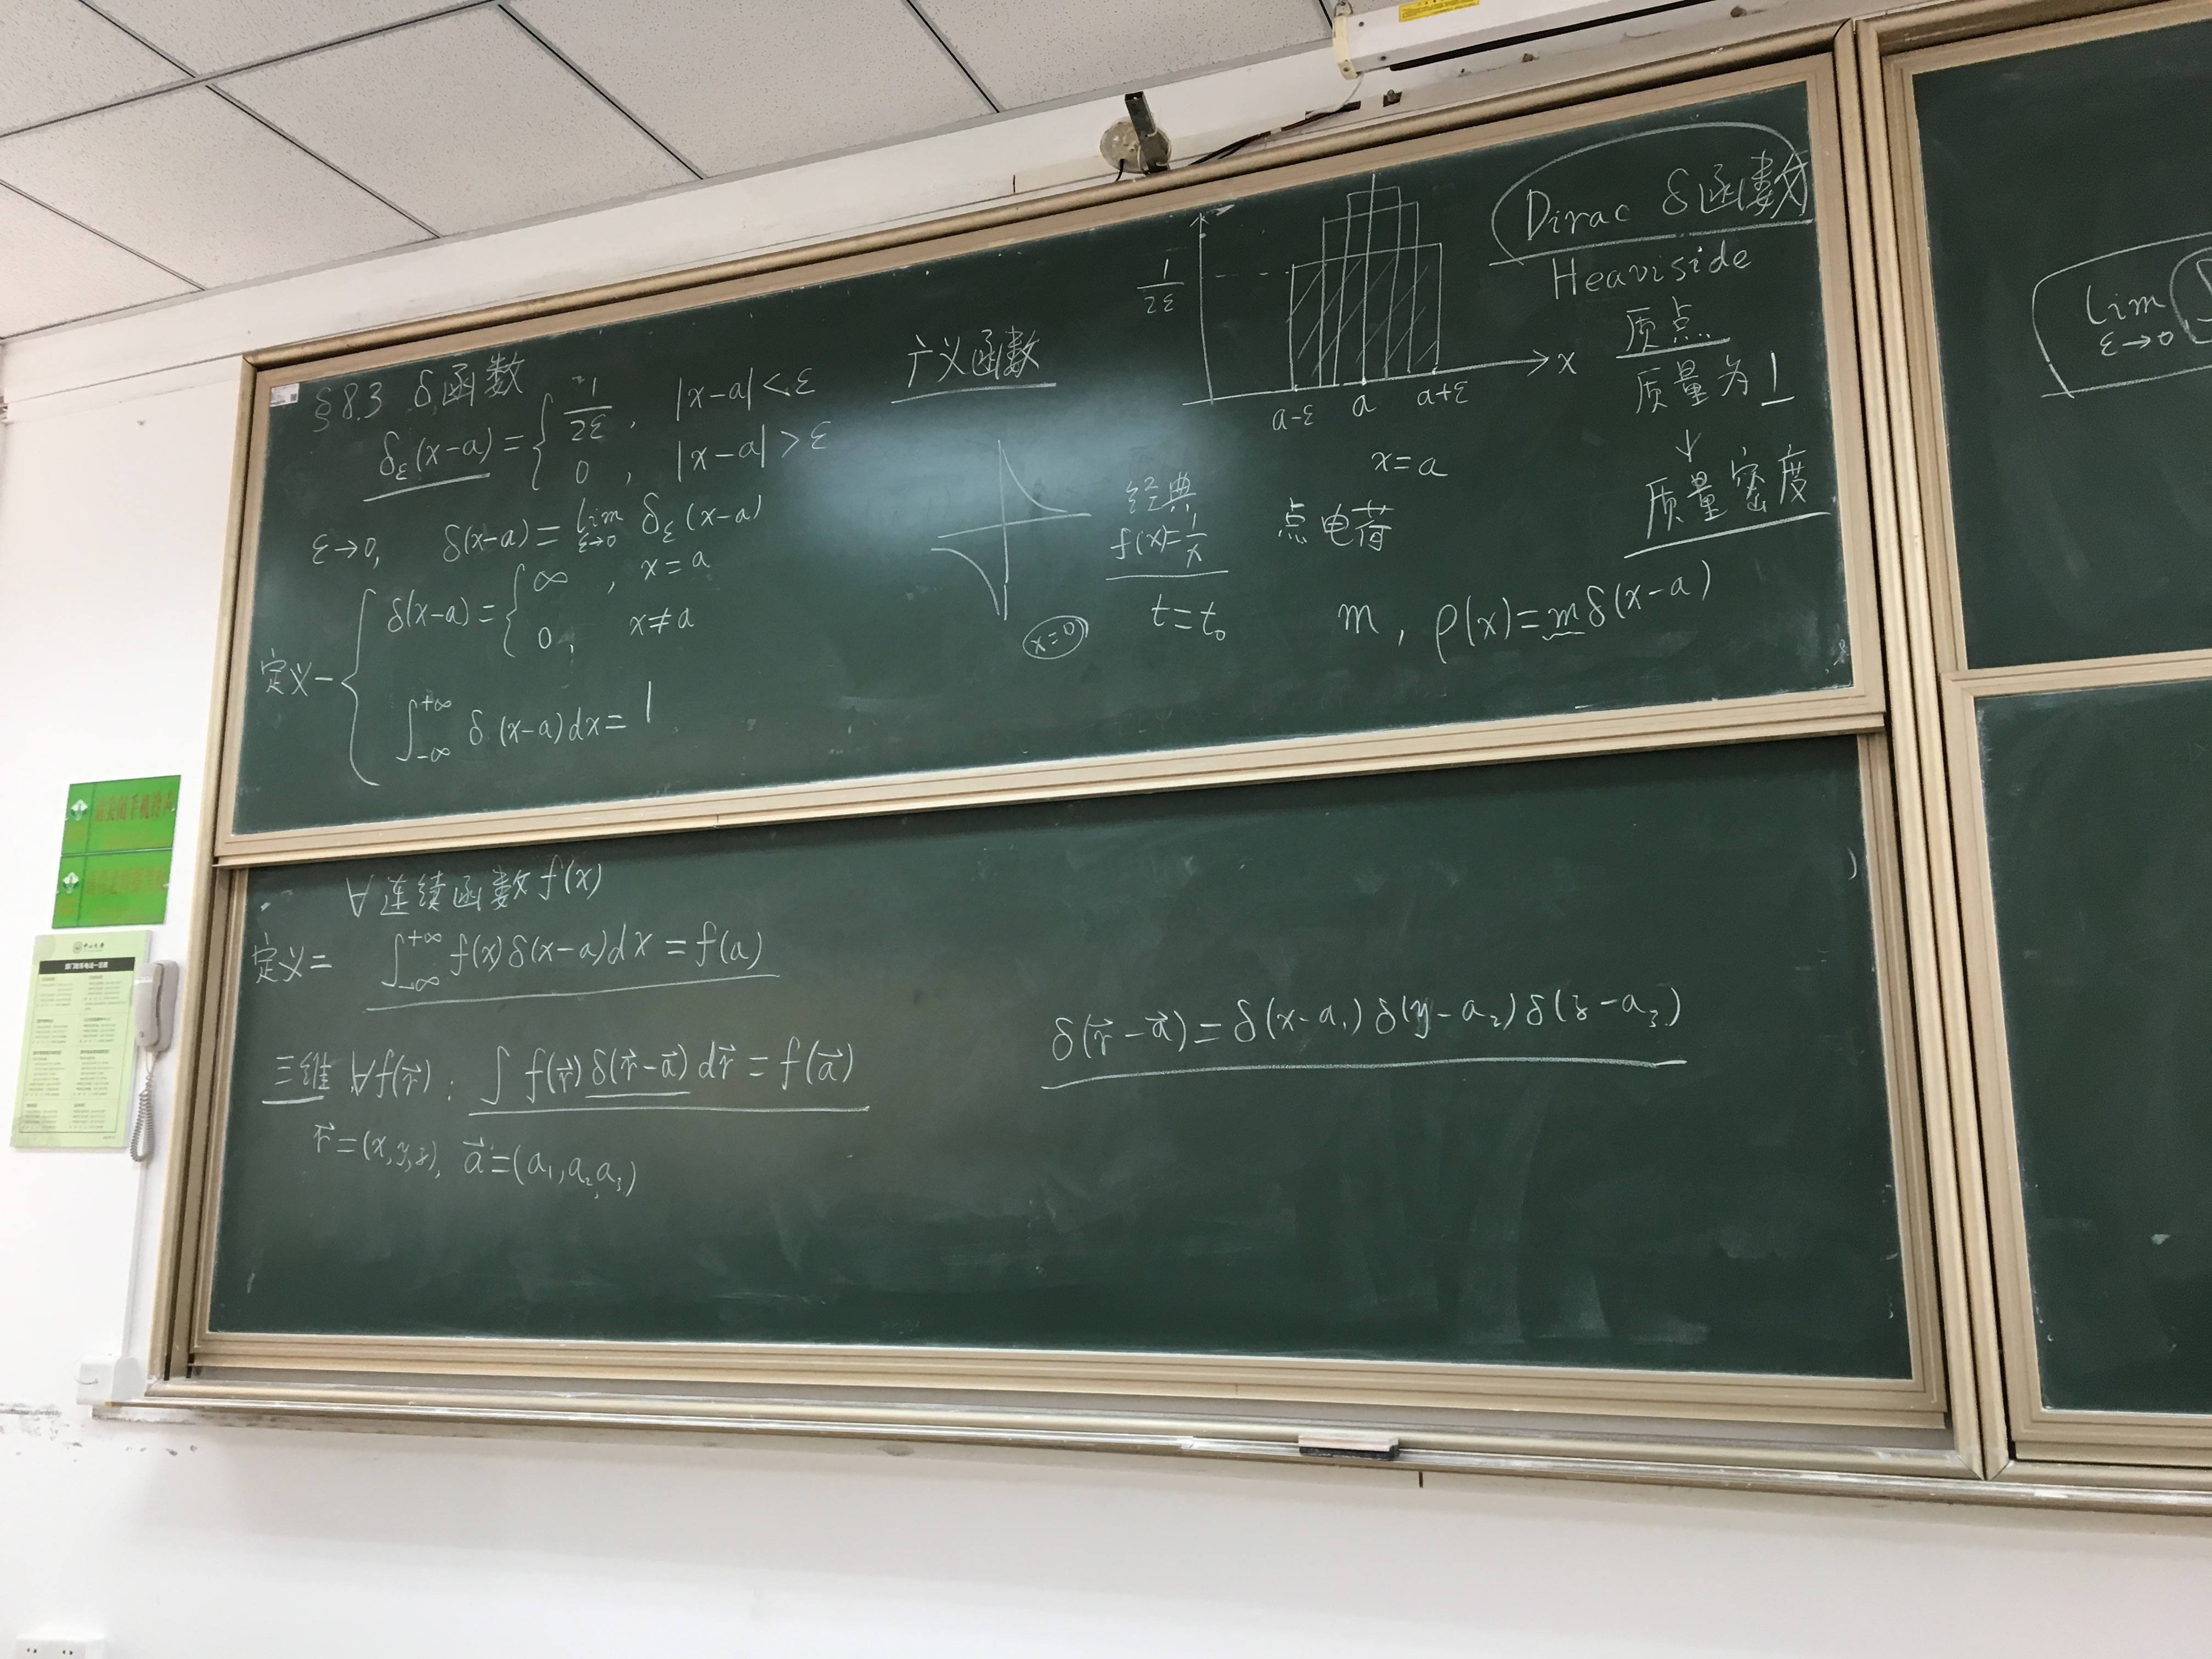 §8.3 δ函数
δ_ε(x-a) = { 1/2ε, |x-a|<ε
0, |x-a|>ε
ε→0, δ(x-a) = lim ε→0 δ_ε(x-a)
定义一 { δ(x-a) = { ∞, x=a
0, x≠a
∫_{-∞}^{+∞} δ(x-a)dx = 1
广义函数
x=0
经典
f(x)=1/x
t=t₀
1/2ε
a-ε a a+ε
x
x=a
点电荷
m, ρ(x)=mδ(x-a)
Dirac δ函数
Heaviside
质点
质量为1
↓
质量密度
∀连续函数f(x)
定义二 ∫_{-∞}^{+∞} f(x)δ(x-a)dx = f(a)
三维 ∀f(r⃗): ∫ f(r⃗) δ(r⃗-a⃗) dr⃗ = f(a⃗)
r⃗=(x,y,z), a⃗=(a₁,a₂,a₃)
δ(r⃗-a⃗) = δ(x-a₁)δ(y-a₂)δ(z-a₃)
lim ε→0